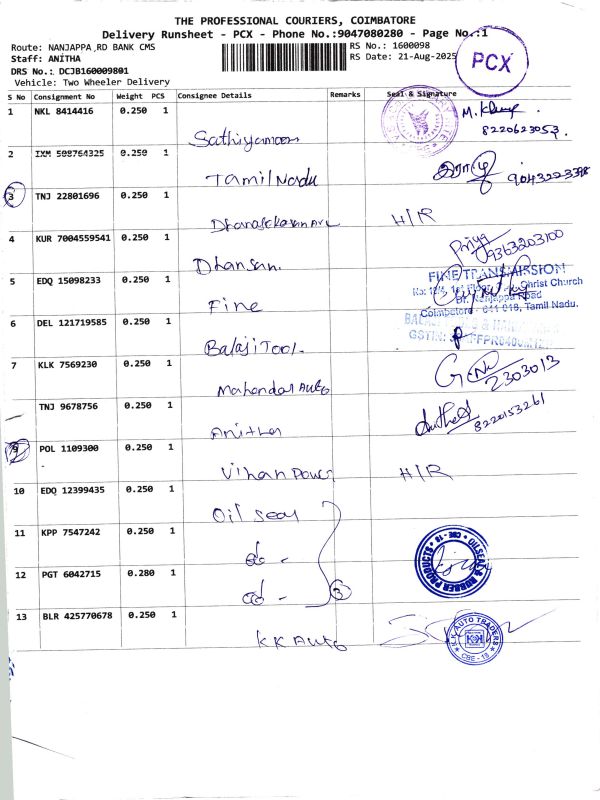 THE PROFESSIONAL COURIERS, COIMBATORE
Delivery Runsheet - PCX - Phone No.:9047080280 - Page No.:1
Route: NANJAPPA,RD BANK CMS
RS No.: 1600098
PCX
Staff: ANITHA
RS Date: 21-Aug-2025
DRS No.: DCJB160009801
Vehicle: Two Wheeler Delivery
S No Consignment No Weight PCS Consignee Details Remarks Seal & Signature
1 NKL 8414416 0.250 1 Sathiyamoon
8220623053.
2 IXM 508764325 0.250 1 Tamil Nadu 9043223398
3 TNJ 22801696 0.250 1 H/R
4 KUR 7004559541 0.250 1 Dhansan. Priya 9363203100
5 EDQ 15098233 0.250 1 Fine
FINE TRANSMISSION
Christ Church
Nanjappa Road
Coimbatore - 641 018, Tamil Nadu.
6 DEL 121719585 0.250 1 Balaji Tool.
GSTIN:
7 KLK 7569230 0.250 1 Mahendar Auto
2303013
TNJ 9678756 0.250 1 Anitha 8220153261
9 POL 1109300 0.250 1 Vihan Power H/R
10 EDQ 12399435 0.250 1 Oil Seal
11 KPP 7547242 0.250 1 do -
OILSEALS & RUBBER PRODUCTS * CBE - 18 *
12 PGT 6042715 0.280 1 do - 3
13 BLR 425770678 0.250 1 KK Auto
K.K. AUTO TRADERS
KK
CBE - 18